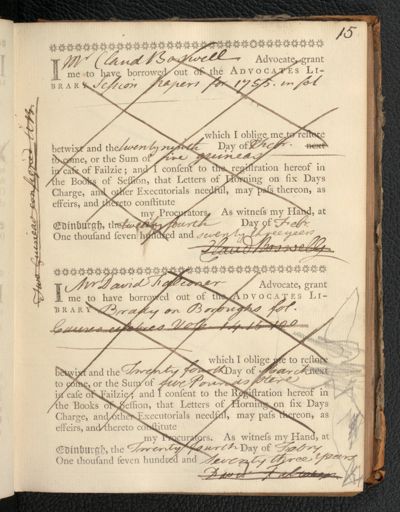 15
I Mr Claud Boswell Advocate, grant
me to have borrowed out of the ADVOCATES LI-
BRARY Session papers for 1755. in fol
which I oblige me to restore
betwixt and the twenty ninth Day of next
to come, or the Sum of five guineas
in case of Failzie; and I consent to the registration hereof in
the Books of Session, that Letters of Horning on six Days
Charge, and other Executorials needful, may pass thereon, as
effeirs, and thereto constitute
my Procurators. As witness my Hand, at
Edinburgh, the twenty fourth Day of Febr
One thousand seven hundred and seventy three years
Claud Boswell
I Mr David Falconer Advocate, grant
me to have borrowed out of the ADVOCATES LI-
BRARY Brady on Boroughs fol.
which I oblige me to restore
betwixt and the Twenty fourth Day of March next
to come, or the Sum of five Pounds Sters
in case of Failzie; and I consent to the Registration hereof in
the Books of Session, that Letters of Horning on six Days
Charge, and other Executorials needful, may pass thereon, as
effeirs, and thereto constitute
my Procurators. As witness my Hand, at
Edinburgh, the Twenty fourth Day of Febry
One thousand seven hundred and Seventy three years
David Falconer